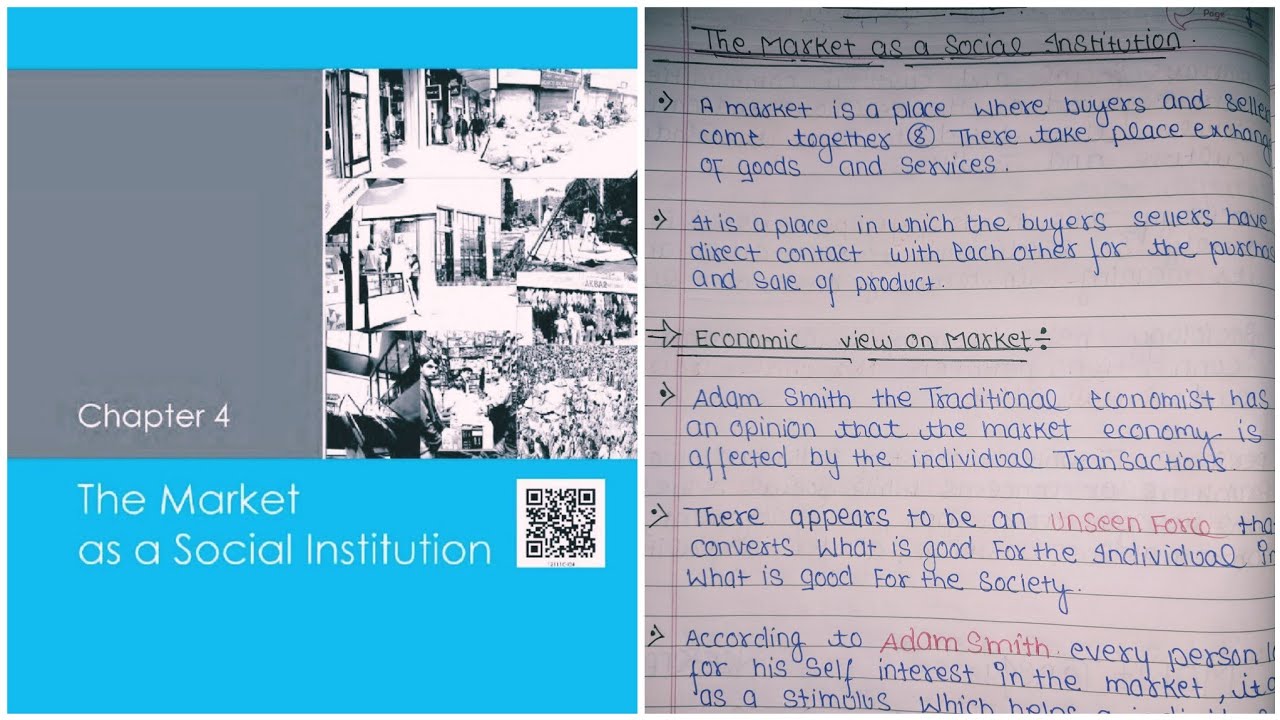 Chapter 4
The Market
as a Social Institution
AKBAR
Page
The Market as a Social Institution.
A market is a place where buyers and seller
come together & There take place exchang
of goods and services.
It is a place in which the buyers sellers have
direct contact with each other for the purcha
and sale of product.
Economic view on Market÷
Adam Smith the Traditional economist has
an opinion that the market economy is
affected by the individual Transactions.
There appears to be an Unseen Force tha
converts What is good For the Individual in
What is good For the Society.
According to Adam Smith every person
for his Self interest in the market, it
as a stimulus which helps